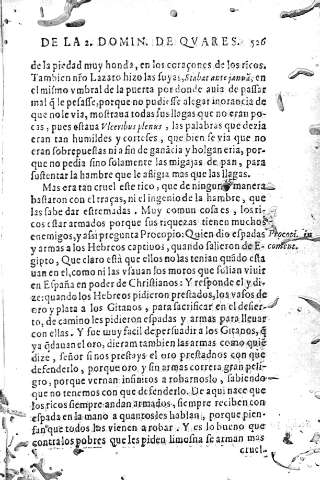 DE LA 2. DOMIN. DE QVARES. 526
de la piedad muy honda, en los coraçones de los ricos.
Tambien nr̃o Lazaro hizo las suyas, Stabat ante januã, en
el mismo vmbral de la puerta por donde auia de passar
mal q̃ le pesasse, porque no pudiesse alegar inorancia de
que no le via, mostraua todas sus llagas que no eran po-
cas, pues estaua Vlceribus plenus, las palabras que dezia
eran tan humildes y corteses, que bien se via que no
eran sobrepuestas ni a fin de ganācia y holganeria, por-
que no pedia sino solamente las migajas de pan, para
sustentar la hambre que le afligia mas que las llagas.
Mas era tan cruel este rico, que de ninguna manera
bastaron con el traças, ni el ingenio de la hambre, que
las sabe dar estremadas. Muy comun cosa es, los ri-
cos estar armados porque sus riquezas tienen muchos
enemigos, y assi pregunta Procopio: Quien dio espadas
y armas a los Hebreos captiuos, quando salieron de E-
gipto, Que claro està que ellos no las tenian quãdo esta
uan en el, como ni las vsauan los moros que solian viuir
en España en poder de Christianos: Y responde el y di-
ze: quando los Hebreos pidieron prestados, los vasos de
oro y plata a los Gitanos, para sacrificar en el desier-
to, de camino les pidieron espadas y armas para lleuar
con ellas. Y fue muy facil de persuadir a los Gitanos, q̃
ya q̃ dauan el oro, diessen tambien las armas como quiē
dize, señor si nos prestays el oro prestadnos con que
defenderlo, porque oro, y sin armas correra gran peli-
gro, porque vernan infinitos a robarnoslo, sabiendo
que no tenemos con que defenderlo. De aqui nace que
los ricos siempre andan armados, siempre reciben con
espada en la mano a quantos les hablan, porque pien-
san que todos los vienen a robar. Y es lo bueno que
contra los pobres que les piden limosna se arman mas
cruel-
Procopi. in
coment.